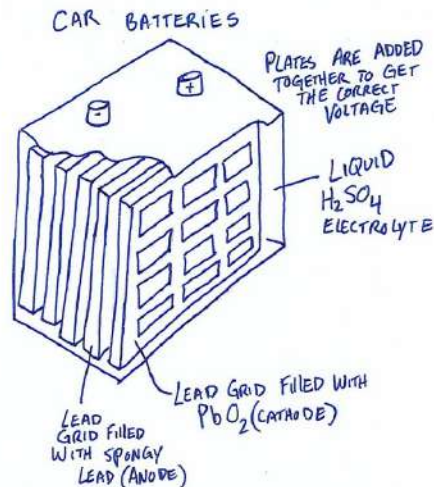 CAR BATTERIES
PLATES ARE ADDED
TOGETHER TO GET
THE CORRECT
VOLTAGE
-
+
LIQUID
H₂SO₄
ELECTROLYTE
LEAD GRID FILLED WITH
PbO₂ (CATHODE)
LEAD
GRID FILLED
WITH SPONGY
LEAD (ANODE)